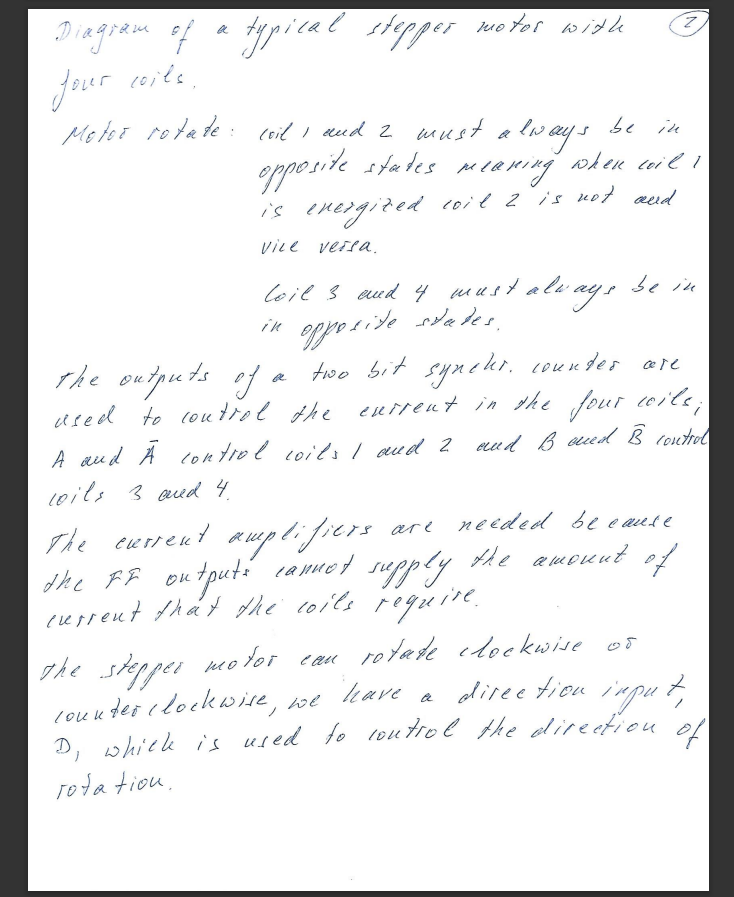 Diagram of a typical stepper motor with
2
four coils.
Motor rotate: coil 1 and 2 must always be in
opposite states meaning when coil 1
is energized coil 2 is not and
vice versa.
Coil 3 and 4 must always be in
in opposite states.
The outputs of a two bit synchr. counter are
used to control the current in the four coils;
A and Ā control coils 1 and 2 and B and B̄ control
coils 3 and 4.
The current amplifiers are needed because
the FF outputs cannot supply the amount of
current that the coils require.
The stepper motor can rotate clockwise or
counterclockwise, we have a direction input,
D, which is used to control the direction of
rotation.